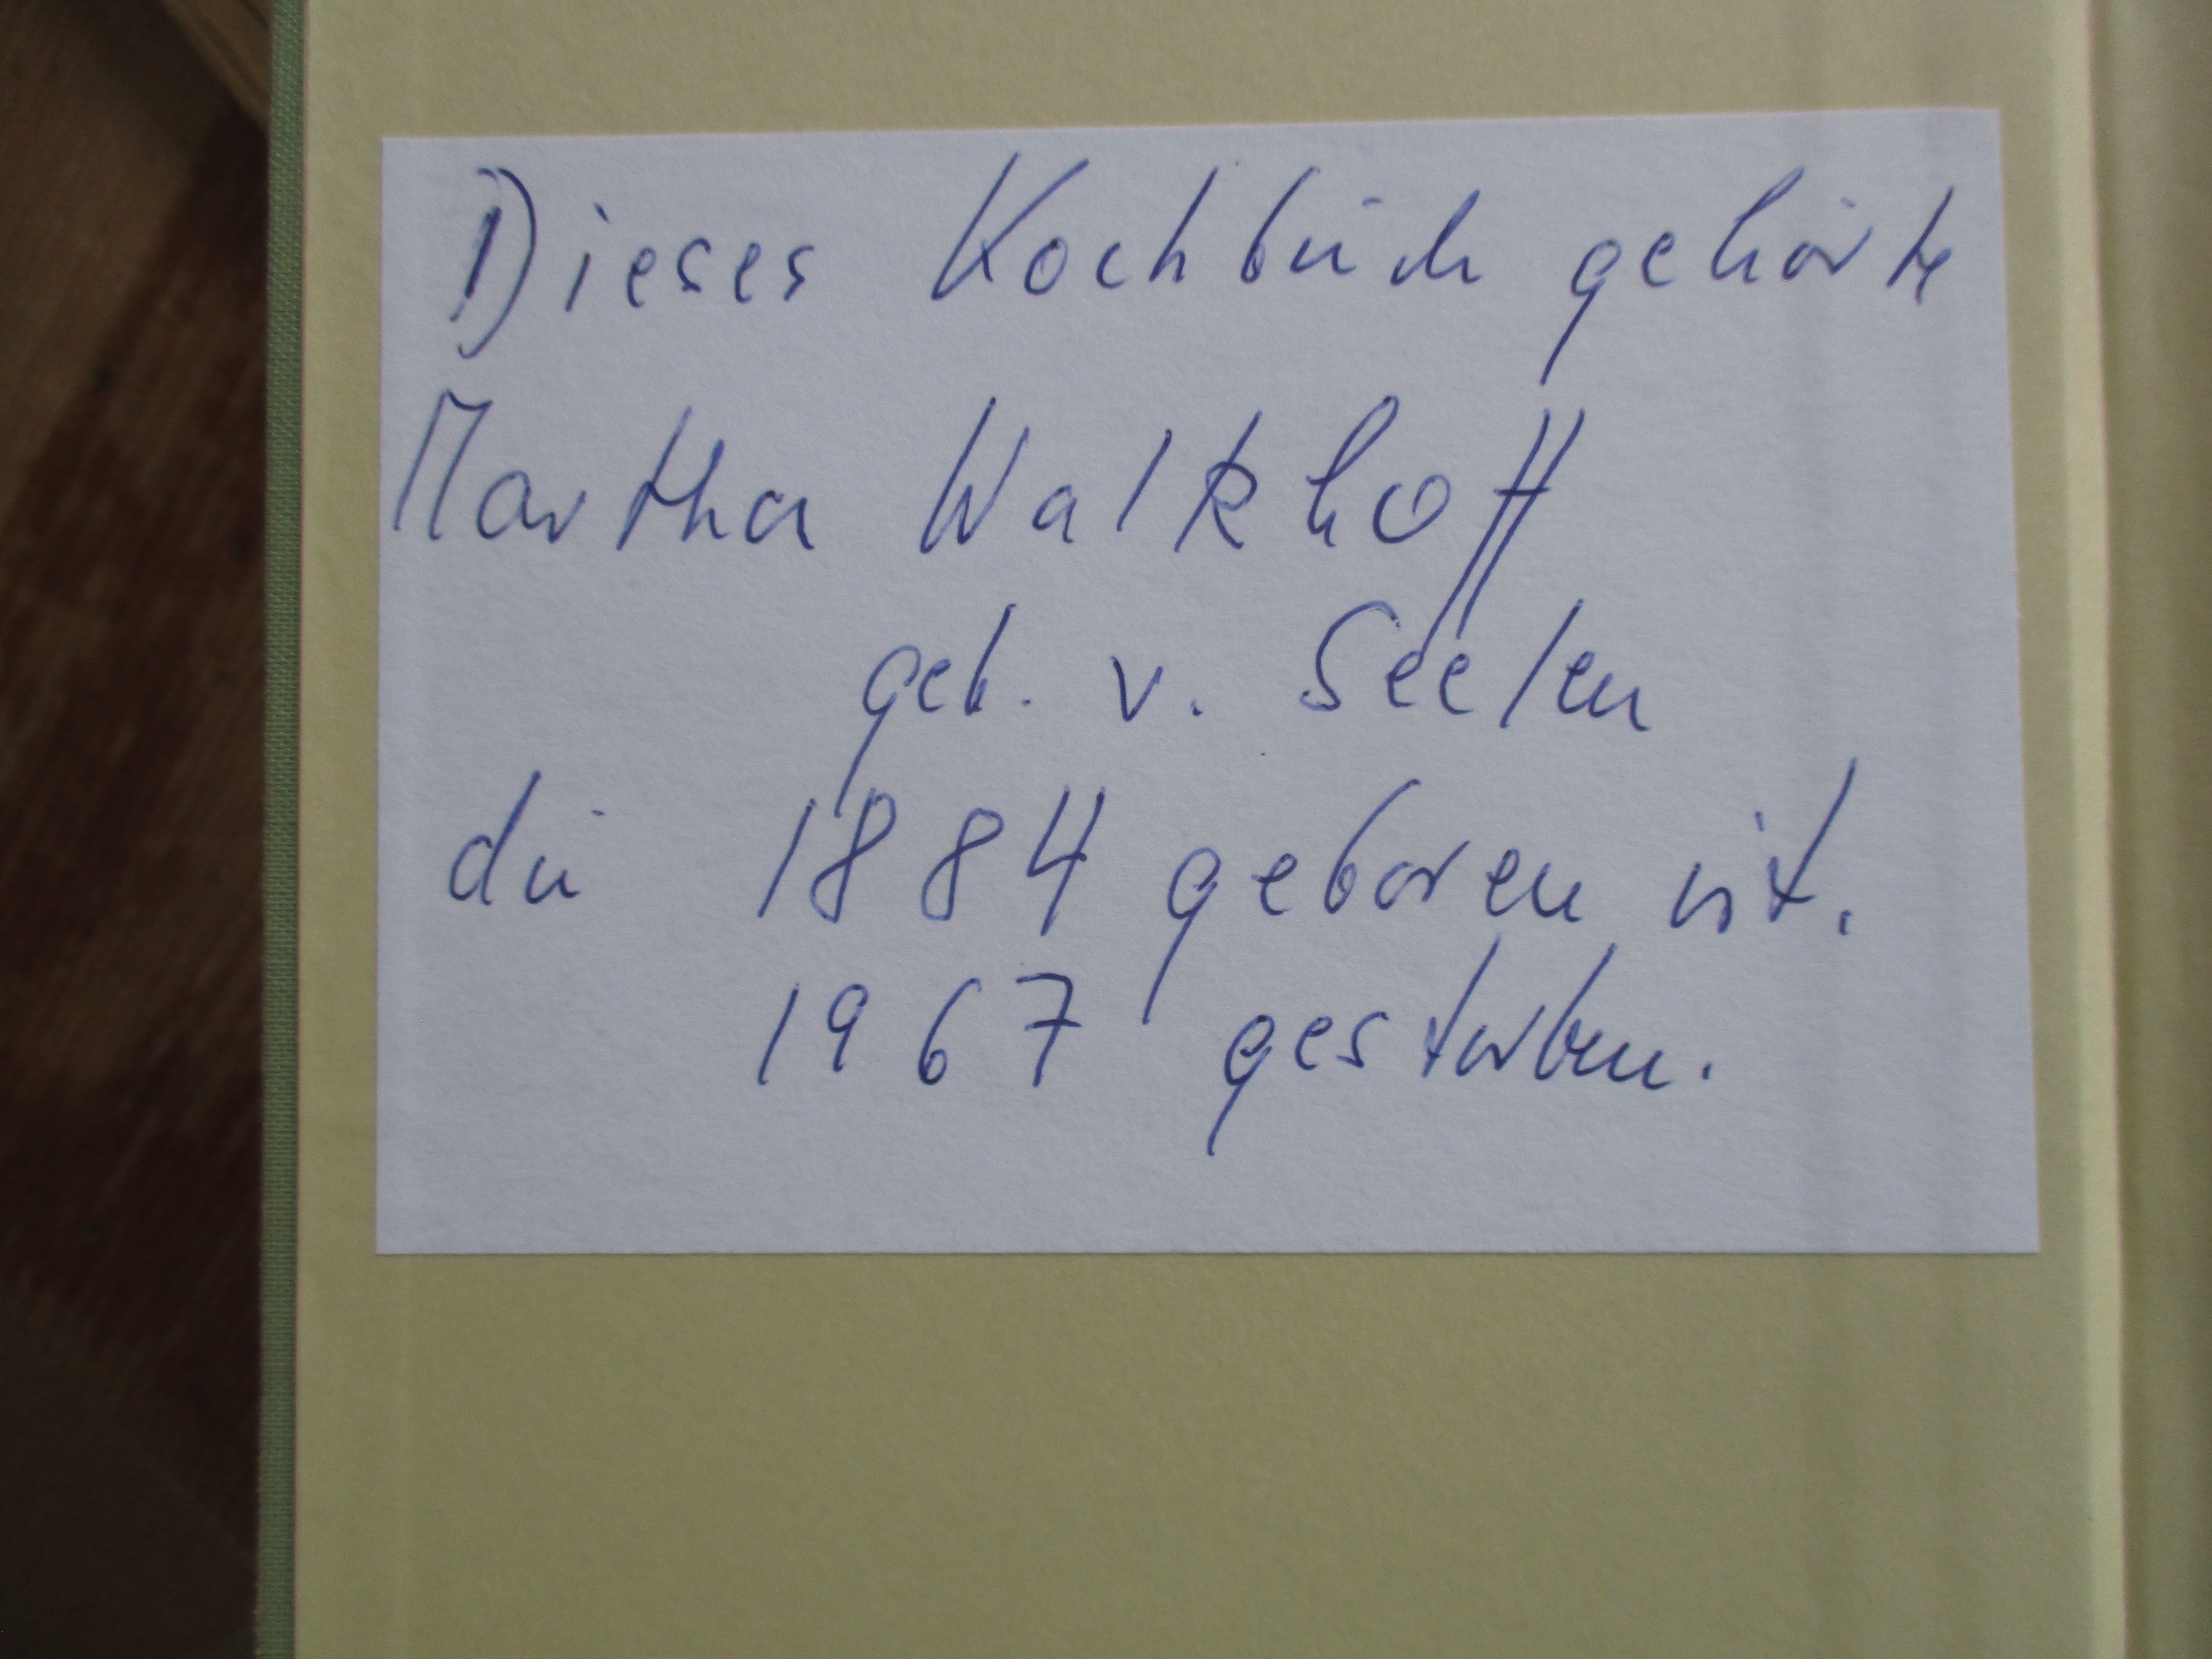 Dieses Kochbuch gehörte
Martha Walkhoff
geb. v. Seelen
die 1884 geboren ist.
1967 gestorben.